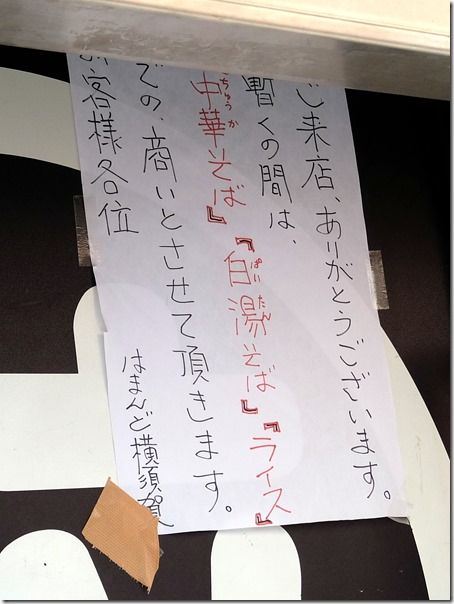 ご来店、ありがとうございます。
暫くの間は、
中華そば』『白湯そば』『ライス』
ちゅうか
ぱいたん
での、商いとさせて頂きます。
客様各位
はまんど横須賀